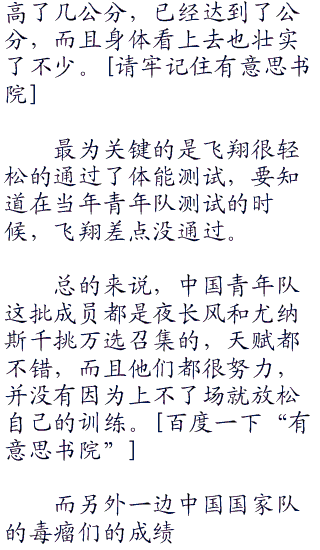 高了几公分，已经达到了公
分，而且身体看上去也壮实
了不少。[请牢记住有意思书
院]
最为关键的是飞翔很轻
松的通过了体能测试，要知
道在当年青年队测试的时
候，飞翔差点没通过。
总的来说，中国青年队
这批成员都是夜长风和尤纳
斯千挑万选召集的，天赋都
不错，而且他们都很努力，
并没有因为上不了场就放松
自己的训练。[百度一下“有
意思书院”]
而另外一边中国国家队
的毒瘤们的成绩